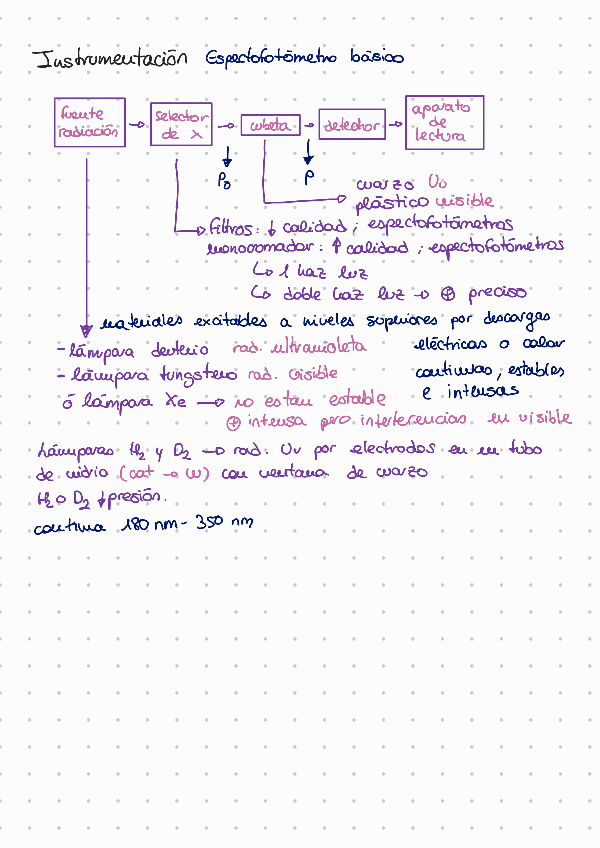 Instrumentación Espectofotómetro básico
fuente radiación → selector de λ → cubeta → detector → aparato de lectura
P₀ P
cuarzo Uv
plástico visible
filtros: ↓ calidad ; espectofotómetros
monocromador: ↑ calidad ; espectofotómetros
↳ 1 haz luz
↳ doble haz luz → ⊕ preciso
materiales excitables a niveles superiores por descargas
eléctricas o calor
- lámpara deuterio rad. ultravioleta
continuas, estables
- lámpara tungsteno rad. visible
e intensas
ó lámpara Xe → no están estable
⊕ intensa pero interferencias en visible
Lámparas H₂ y D₂ → rad. Uv por electrodos en un tubo
de vidrio (cat → w) con ventana de cuarzo
H₂ o D₂ ↓ presión.
continua 180 nm - 350 nm